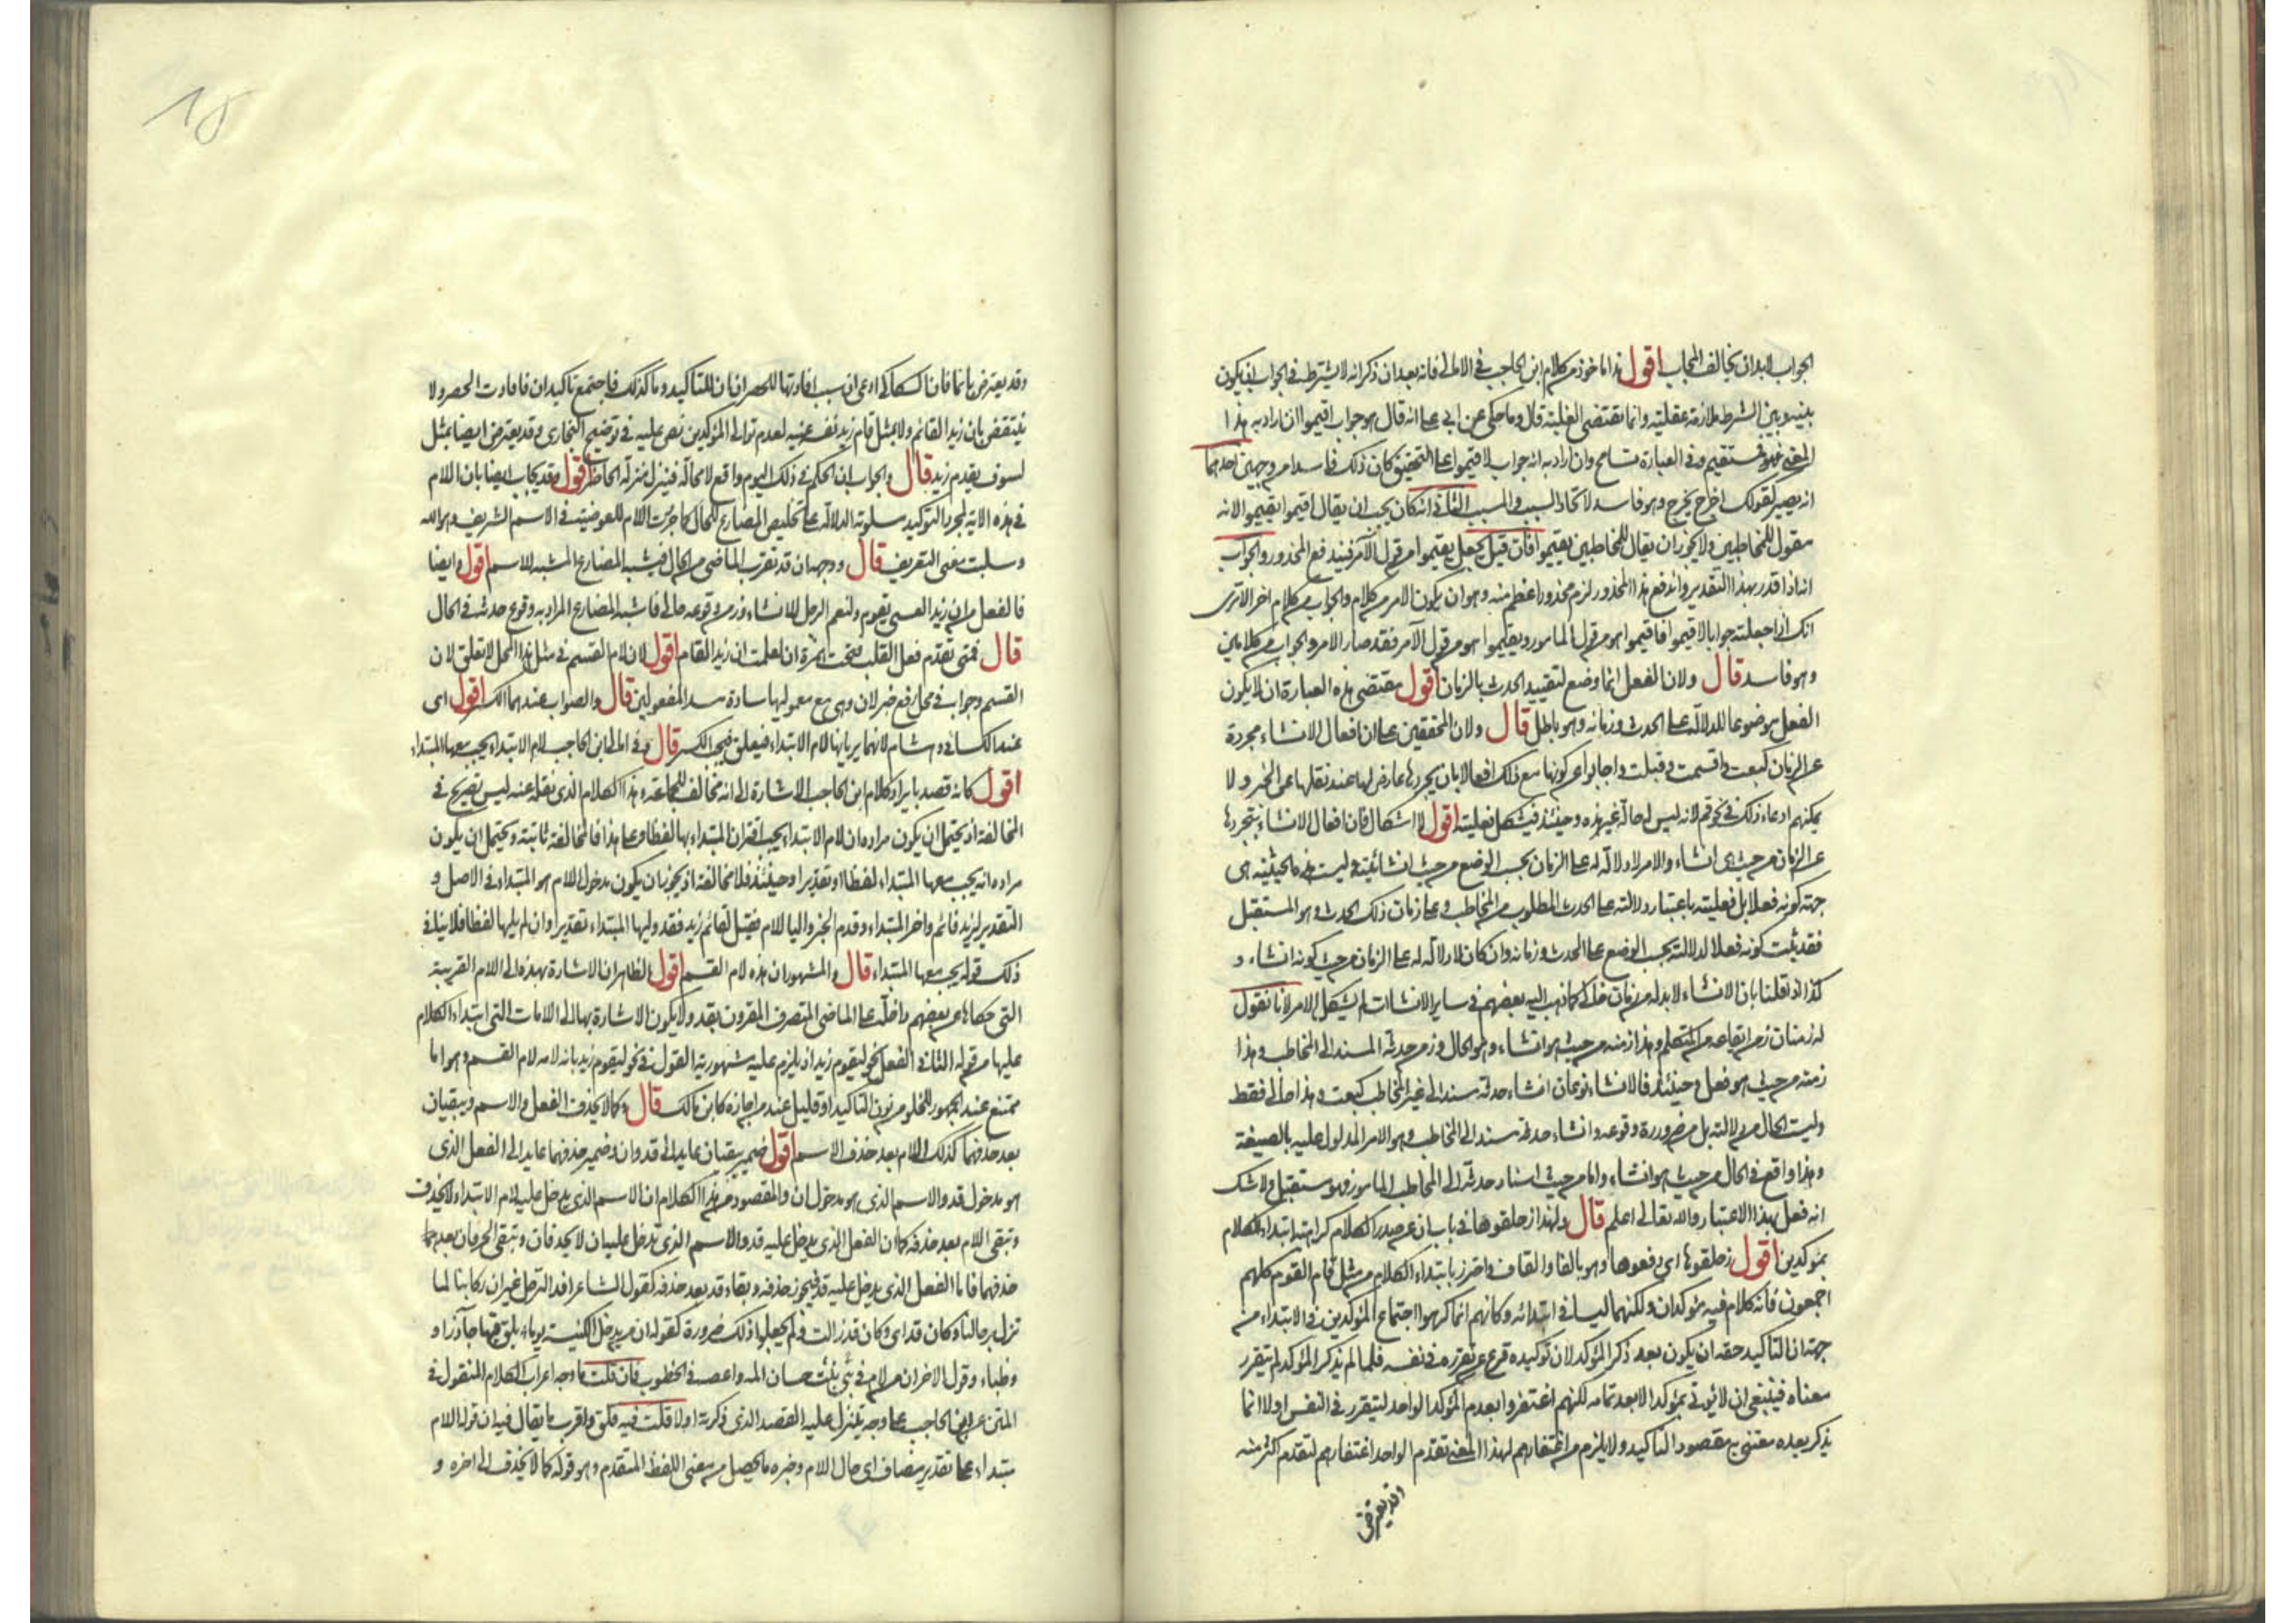 الجواب لابد ان يخالف المجاب اقول هذا ماخوذ من كلام ابن الحاجب في الامالي فانه بعد ان ذكر انه لا يشترط في الجواب ان يكون
بينه وبين الشرط ملازمة عقلية وانما تقتضي الغلبة قال وما حكي عن ابي علي انه قال هو جواب اقيموا ان اراد به هذا
المعنى فهو مستقيم وفي العبارة تسامح وان اراد به انه جواب لاقيموا على التحقيق كان ذلك فاسدا من وجهين احدهما
انه يصير كقولك اخرج يخرج وهو فاسد لاتحاد السبب والمسبب الثاني انه كان يجب ان يقال اقيموا تقيموا لانه
مقول للمخاطبين ولا يجوز ان يقال للمخاطبين يقيموا فان قيل يجعل يقيموا من قول الآمر فيندفع المحذور والجواب
انه اذا قدر بهذا التقدير واندفع هذا المحذور لزم محذور اعظم منه وهو ان يكون الامر من كلام والجواب من كلام اخر الا ترى
انك اذا جعلته جوابا لاقيموا فاقيموا هو من قول المامور ويقيموا هو من قول الآمر فقد صار الامر والجواب من كلامين
وهو فاسد قال ولان الفعل انما وضع لتقييد الحدث بالزمان اقول مقتضى هذه العبارة ان لا يكون
الفعل موضوعا للدلالة على الحدث وزمانه وهو باطل قال ولان المحققين على ان افعال الانشاء مجردة
عن الزمان كبعت واقسمت وقبلت واجابوا عن كونها مع ذلك افعالا بان تجردها عارض لها عند نقلها عن الخبر ولا
يمكنهم ادعاء ذلك في نحو قم لانه ليس له حالة غير هذه وحينئذ فيشكل فعليته اقول لا اشكال فان افعال الانشاء تتجردها
عن الزمان من حيث هي انشاء والامر لا دلالة له على الزمان بحسب الوضع من حيث انشائيته وليست هذه الحيثية هي
جهة كونه فعلا بل فعليته باعتبار دلالته على الحدث المطلوب من المخاطب وعلى زمان ذلك الحدث وهو المستقبل
فقد ثبت كونه فعلا لدلالته بحسب الوضع على الحدث وزمانه وان كان لا دلالة له على الزمان من حيث كونه انشاء و
كذا اذا قلنا بان الانشاء لابد له من زمان حالي كما ذهب اليه بعضهم في سائر الانشاآت لم يشكل الامر لانا نقول
له زمنان زمن ايقاعه من المتكلم وهذا زمنه من حيث هو انشاء وهو الحال وزمن حدثه المسند الى المخاطب وهذا
زمنه من حيث هو فعل وحينئذ فالانشاء نوعان انشاء حدثه مسند الى غير المخاطب كبعت وهذا حالي فقط
وليت الحال من دلالته بل من ضرورة وقوعه وانشاء حدثه مسند الى المخاطب وهو الامر المدلول عليه بالصيغة
وهذا واقع في الحال من حيث هو انشاء واما من حيث اسناد حدثه الى المخاطب المامور فهو مستقبل ولا شك
انه فعل بهذا الاعتبار والله تعالى اعلم قال ولهذا زحلقوها في باب ان عن صدر الكلام كراهة ابتداء الكلام
بمؤكدين اقول زحلقوها اي دفعوها وهو بالفا والقاف واحترز بابتداء الكلام من مثل قام القوم كلهم
اجمعون فانه كلام فيه مؤكدان ولكنهما ليسا في ابتدائه وكانهم انما كرهوا اجتماع المؤكدين في الابتداء من
جهة ان التاكيد حقه ان يكون بعد ذكر المؤكد لان توكيده فرع عن تقرره في نفسه فلما لم يذكر المؤكد لم يتقرر
معناه فينبغي ان لا يؤتى بمؤكد الا بعد تمامه لكنهم اغتفروا بعدم المؤكد الواحد ليتقرر في النفس اولا انما
يذكر بعده معتنى به مقصود التاكيد ولا يلزم من اغتفارهم لهذا المعنى تقدم الواحد اغتفارهم لتقدم اكثر منه
وقد يعترض
وقد يعترض بانما فان السكاكي ادعى ان سبب افادتها للحصر ان ان للتاكيد وما كذلك فاجتمع تاكيدان فافادت الحصر ولا
ينتقض بان زيدا لقائم ولا بمثل قام زيد نفسه عينه لعدم توالي المؤكدين نص عليه في توضيح البخاري وقد يعترض ايضا بمثل
لسوف يقدم زيد قال والجواب ان الحكم في ذلك اليوم واقع لا محالة فينزل منزلة الحاضر اقول وقد يجاب ايضا بان اللام
في هذه الاية لمجرد التوكيد مسلوبة الدلالة على تخليص المضارع للحال كما جردت اللام للعوضية في الاسم الشريف وهو الله
وسلبت معنى التعريف قال ووجهه ان قد تقرب الماضي من الحال فيشبه المضارع المشبه للاسم اقول وايضا
فالفعل من ان زيدا لعسى يقوم ولنعم الرجل للانشاء وزمن وقوعه حالي فاشبه المضارع المراد به وقوع حدثه في الحال
قال فمتى تقدم فعل القلب فتحت همزة ان لعلمت ان زيدا لقام اقول لان لام القسم في مثل هذا المحل لا تعلق لان
القسم وجوابه في محل رفع خبر لان وهي مع معموليها سادة مسد المفعولين قال والصواب عندهما الكسر اقول اى
عند الكسائي وهشام لانهما يريانها لام الابتداء فيعلق فيجب الكسر قال وفي امالي ابن الحاجب لام الابتداء يجب معها المبتداء
اقول كانه قصد بايراد كلام ابن الحاجب الاشارة الى انه مخالف للجماعة وهذا الكلام الذي نقله عنه ليس بصريح في
المخالفة اذ يحتمل ان يكون مراده ان لام الابتداء يجب اقتران المبتداء بها لفظا وعلى هذا فالمخالفة ثابتة ويحتمل ان يكون
مراده انه يجب معها المبتداء لفظا او تقديرا وحينئذ فلا مخالفة اذ يجوز ان يكون مدخول اللام هو المبتداء في الاصل و
التقدير لزيد قائم واخر المبتداء وقدم الخبر واليا اللام فقيل لقائم زيد فقد وليها المبتداء تقديرا وان لم يليها لفظا فلا ينافي
ذلك قوله يجب معها المبتداء قال والمشهور ان هذه لام القسم اقول الظاهر ان الاشارة بهذه الى اللام القريبة
التي حكاها عن بعضهم داخلة على الماضي المتصرف المقرون بقد ولا يكون الاشارة بها الى اللامات التي ابتداء الكلام
عليها من قوله الثاني الفعل نحو ليقوم زيد اذ يلزم عليه مشهورية القول في نحو ليقوم زيد بانه لامه لام القسم وهو اما
ممتنع عند الجمهور للخلو من نون التاكيد او قليل عند من اجازه كابن مالك قال وكما لا يحذف الفعل والاسم ويبقيان
بعد حذفهما كذلك اللام بعد حذف الاسم اقول ضمير يبقيان عايد الى قد وان وضمير حذفهما عايد الى الفعل الذى
هو مدخول قد والاسم الذى هو مدخول ان والمقصود من هذا الكلام ان الاسم الذى يدخل عليه لام الابتداء لا يحذف
وتبقى اللام بعد حذفه كما ان الفعل الذى يدخل عليه قد والاسم الذى تدخل عليه ان لا يحذفان وتبقى الحرفان بعد
حذفهما فاما الفعل الذى يدخل عليه قد فيجوز حذفه وبقاء قد بعد حذفه كقول الشاعر افد الترحل غير ان ركابنا لما
تزل برحالنا وكان قد اى وكان قد زالت فلم يجعلوا ذلك ضرورة كقوله ان من يدخل الكنيسة يوما يلق فيها جآذرا و
وظباء وقول الاخر ان من لام في بني بنت حسان المه واعصه في الخطوب فان قلت ما وجه اعراب الكلام المنقول في
المتن عن ابن الحاجب على وجه يتنزل عليه القصد الذى ذكرته اولا قلت فيه قلق واقرب ما يقال فيه ان قوله اللام
مبتداء على تقدير مضاف اى حال اللام وخبره ما يحصل من معنى اللفظ المتقدم وهو قوله كما لا يحذف الى اخره و